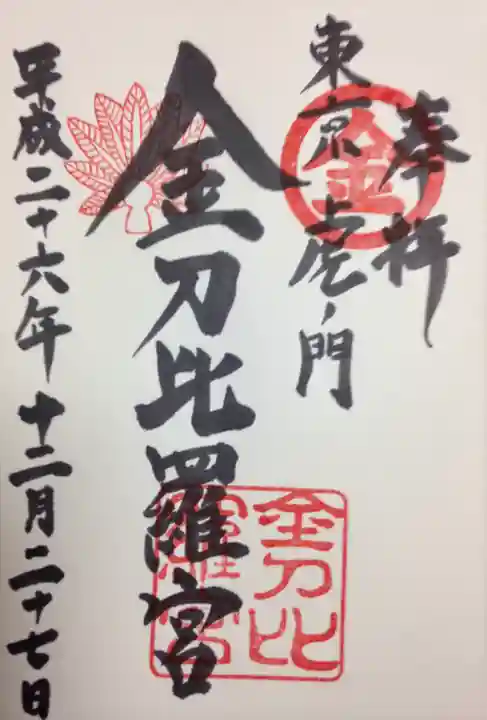 奉拝
東京虎ノ門
金
金刀比羅宮
金刀比
羅宮
平成二十六年十二月二十七日